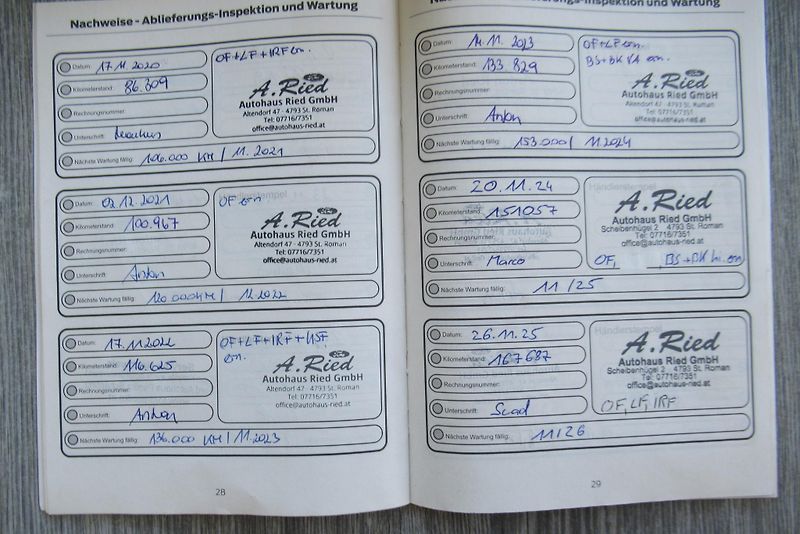 Nachweise - Ablieferungs-Inspektion und Wartung
Datum: 17.11.2020
Kilometerstand: 86.309
Rechnungsnummer:
Unterschrift: Markus
Nächste Wartung fällig: 106.000 KM / 11.2021
OF+LF+IRF ern.
A.Ried
Autohaus Ried GmbH
Altendorf 47 - 4793 St. Roman
Tel: 07716/7351
office@autohaus-ried.at
Datum: 02.12.2021
Kilometerstand: 100.967
Rechnungsnummer:
Unterschrift: Anton
Nächste Wartung fällig: 120.000KM / 12.2022
OF ern
A.Ried
Autohaus Ried GmbH
Altendorf 47 - 4793 St. Roman
Tel: 07716/7351
office@autohaus-ried.at
Datum: 17.11.2022
Kilometerstand: 116.625
Rechnungsnummer:
Unterschrift: Anton
Nächste Wartung fällig: 136.000 KM / 11.2023
OF+LF+IRF+KSF
ern.
A.Ried
Autohaus Ried GmbH
Altendorf 47 - 4793 St. Roman
Tel: 07716/7351
office@autohaus-ried.at
28
Ablieferungs-Inspektion und Wartung
Datum: 14.11.2023
Kilometerstand: 133.829
Rechnungsnummer:
Unterschrift: Anton
Nächste Wartung fällig: 153.000 / 11.2024
OF+LF ern.
BS+BK VA ern.
A.Ried
Autohaus Ried GmbH
Altendorf 47 - 4793 St. Roman
Tel: 07716/7351
office@autohaus-ried.at
Datum: 20.11.24
Kilometerstand: 151057
Rechnungsnummer:
Unterschrift: Marco
Nächste Wartung fällig: 11/25
Händlerstempel
A.Ried
Autohaus Ried GmbH
Scheibenhügel 2 4793 St. Roman
Tel: 07716/7351
office@autohaus-ried.at
OF, BS+BK hi. ern
Datum: 26.11.25
Kilometerstand: 167687
Rechnungsnummer:
Unterschrift: Suad
Nächste Wartung fällig: 11/26
Händlerstempel
A.Ried
Autohaus Ried GmbH
Scheibenhügel 2 4793 St. Roman
Tel: 07716/7351
office@autohaus-ried.at
OF, LF, IRF
29